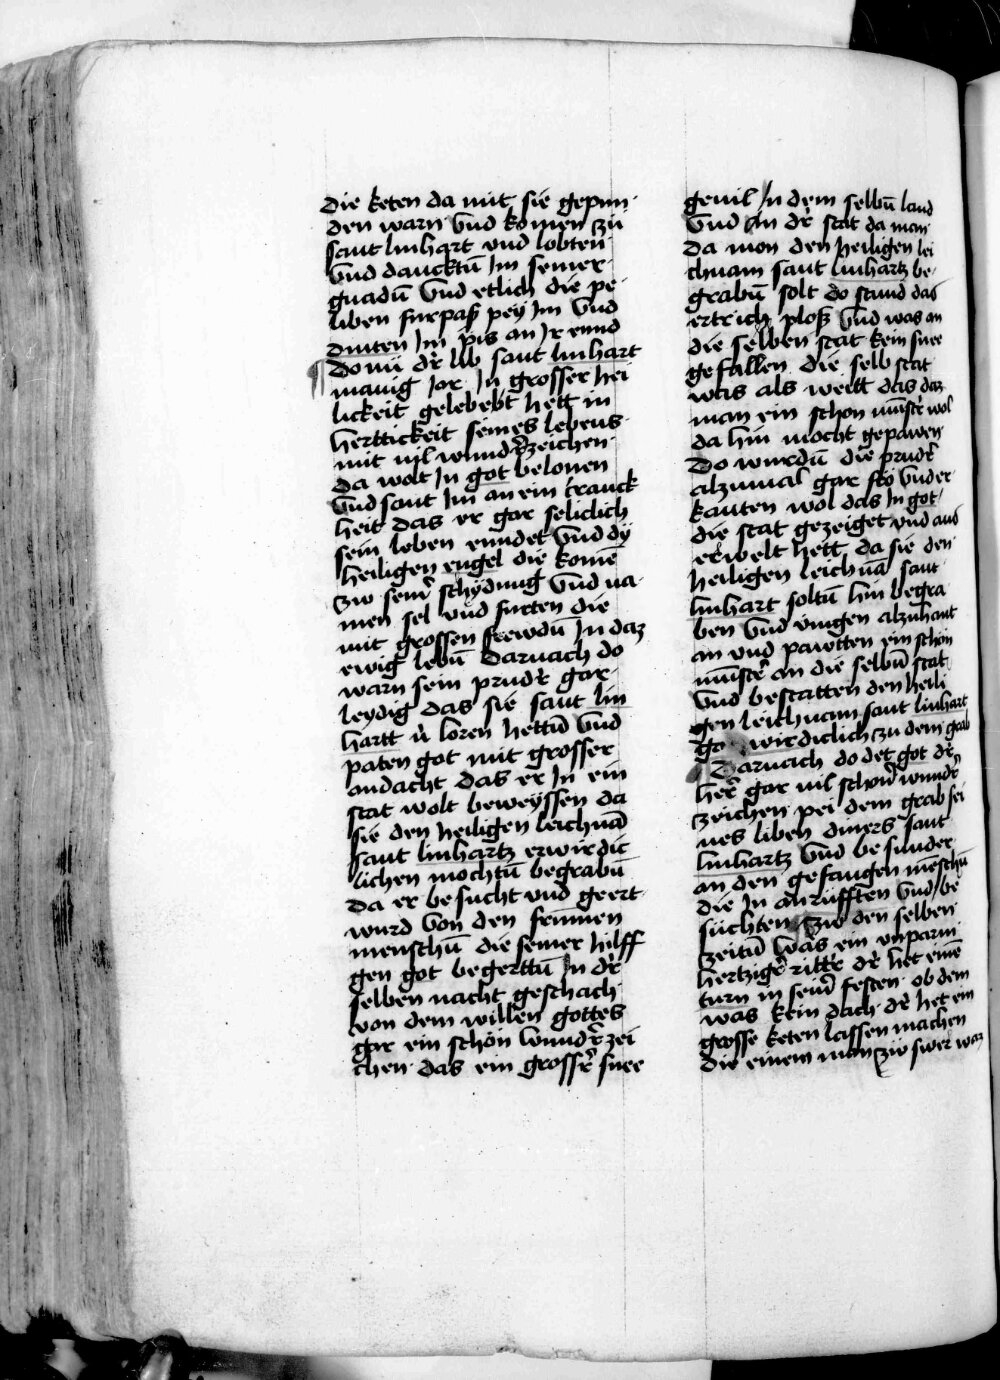 die keten da mit sie gepun
den warn Vnd komen zü
sant linhart vnd lobten
Vnd dancktū Im seiner
gnadū Vnd etlich die pe
liben furpaß pey Im Vnd
dinten Im pis an Ir ennd
Do nü dr̄ lib sant linhart
manig Jor In grosser hei
lickeit gelebebt hett in
herttickeit seines lebens
mit vil wundr̄zeichen
da wolt In got belonen
Vnd sant Im an ein kranck
heit das er gar seliclich
sein leben enndet Vnd dy
heiligen engel die komē
zw seinr̄ schydung Vnd na
men sel vnd furten die
mit grossen frewdū In daz
ewig lebū Darnach do
warn sein prudr̄ gar
leydig das sie sant lin
hartt v̈ loren hettū Vnd
paten got mit grosser
andacht das er In ein
stat wolt beweyssen da
sie den heiligen leichnā
sant linhartz erwirdic
lichen mochtū begrabū
Da er besucht vnd geert
wurd Von den frumen
menschū die seiner hilff
gen got begerttū In dr̄
selben nacht geschach
von dem willen gottes
gar ein schön wundr̄zei
chen das ein grossr̄ snee
geuil In dem selbū land
Vnd In dr̄ stat da man
Da mon den heiligen lei
chnam sant linhartz be
grabū solt do stund das
ertrich ploß Vnd was an
die selben stat kein snee
gefallen die selb stat
was als weitt das daz
man ein schon münstr̄ wol
da hin mocht gepawen
Do wurdū die prudr̄
alzumal gar fro Vnd er
kanten wol das In got
die stat gezeiget vnd aus
erwelt hett da sie den
heiligen leichnā sant
linhart soltū hin begra
ben Vnd viengen alzuhant
an vnd pawtten ein schön
münstr̄ an die selbū stat
Vnd bestatten den heili
gen leichnam sant linhart
wirdiclich zu dem grab
Darnach do det got dr̄
her̄ gar vil schönr̄ wundr̄
zeichen pei dem grab sei
nes liben diners sant
linhartz Vnd besunder
an den gefangen mēschū
die In anrüfften Vnd be
süchten zw den selben
zeitū was ein vnparm
hertzigr̄ rittr̄ dr̄ het einē
turn in seinr̄ festen ob dem
was kein dach dr̄ het ein
grosse keten lassen machen
die einem man zü swer waz